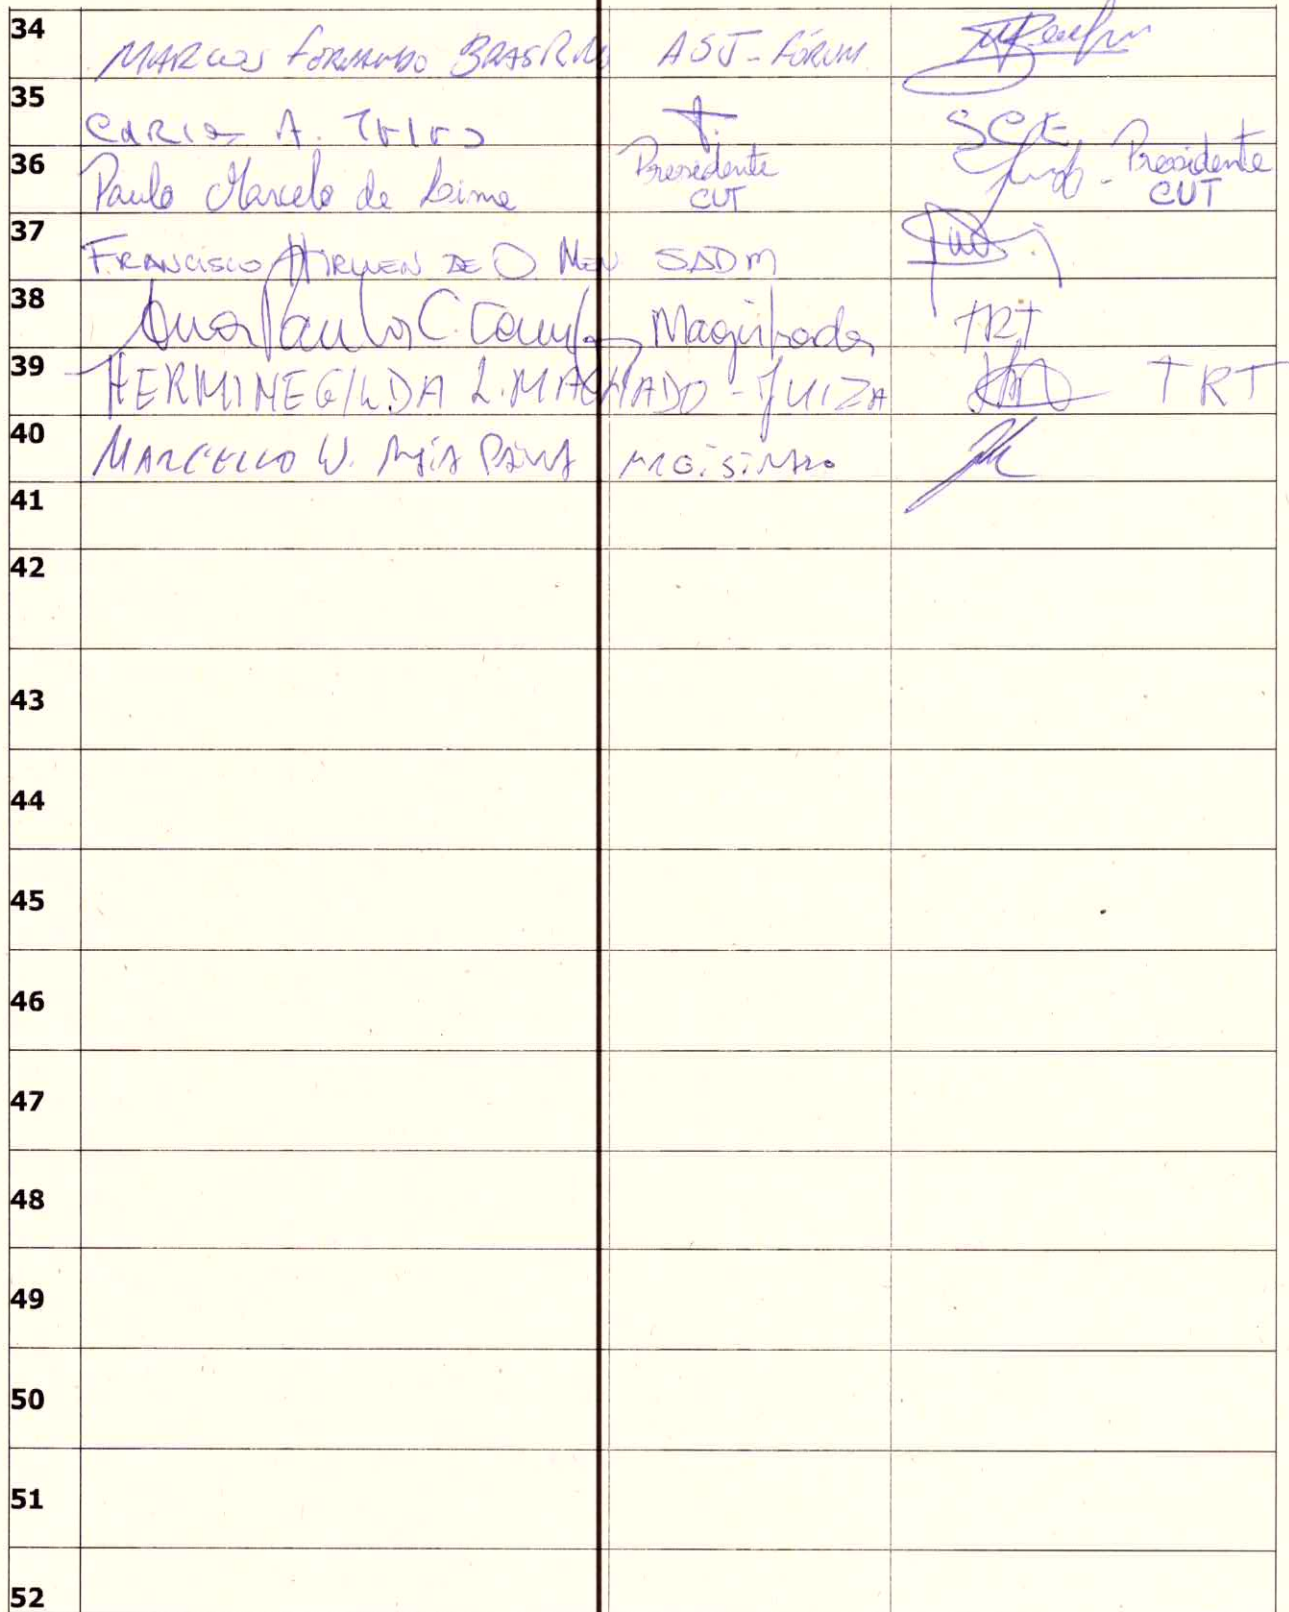 34 MARCOS FERNANDO AST-FÓRUM
35 A.
36 Paulo Marcelo de Lima Presidente CUT Presidente CUT
37 FRANCISCO DE O SADM
38 Ana Paula C. Magistrada TRT
39 HERMINEGILDA L. MACHADO - JUIZA TRT
40 MARCELLO W. MAIA
41
42
43
44
45
46
47
48
49
50
51
52